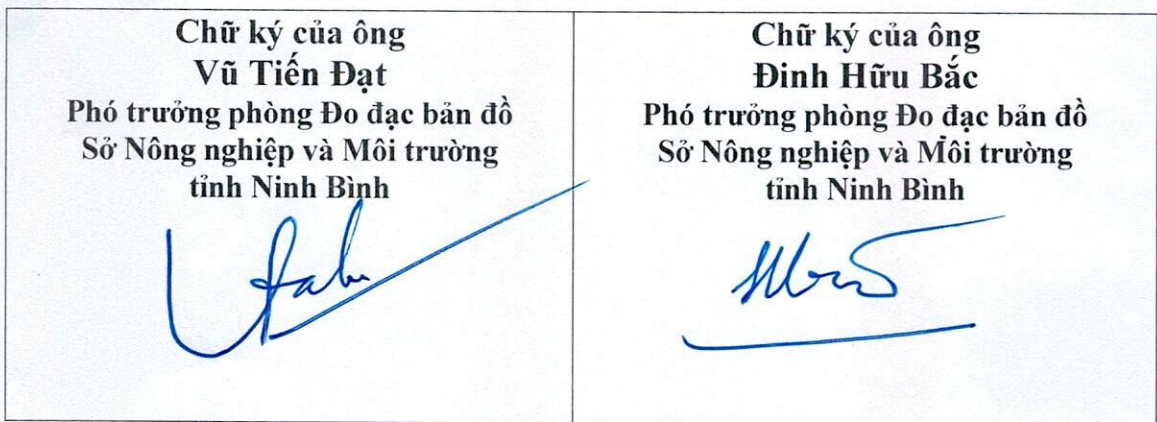 Chữ ký của ông
Vũ Tiến Đạt
Phó trưởng phòng Đo đạc bản đồ
Sở Nông nghiệp và Môi trường
tỉnh Ninh Bình
Chữ ký của ông
Đinh Hữu Bắc
Phó trưởng phòng Đo đạc bản đồ
Sở Nông nghiệp và Môi trường
tỉnh Ninh Bình